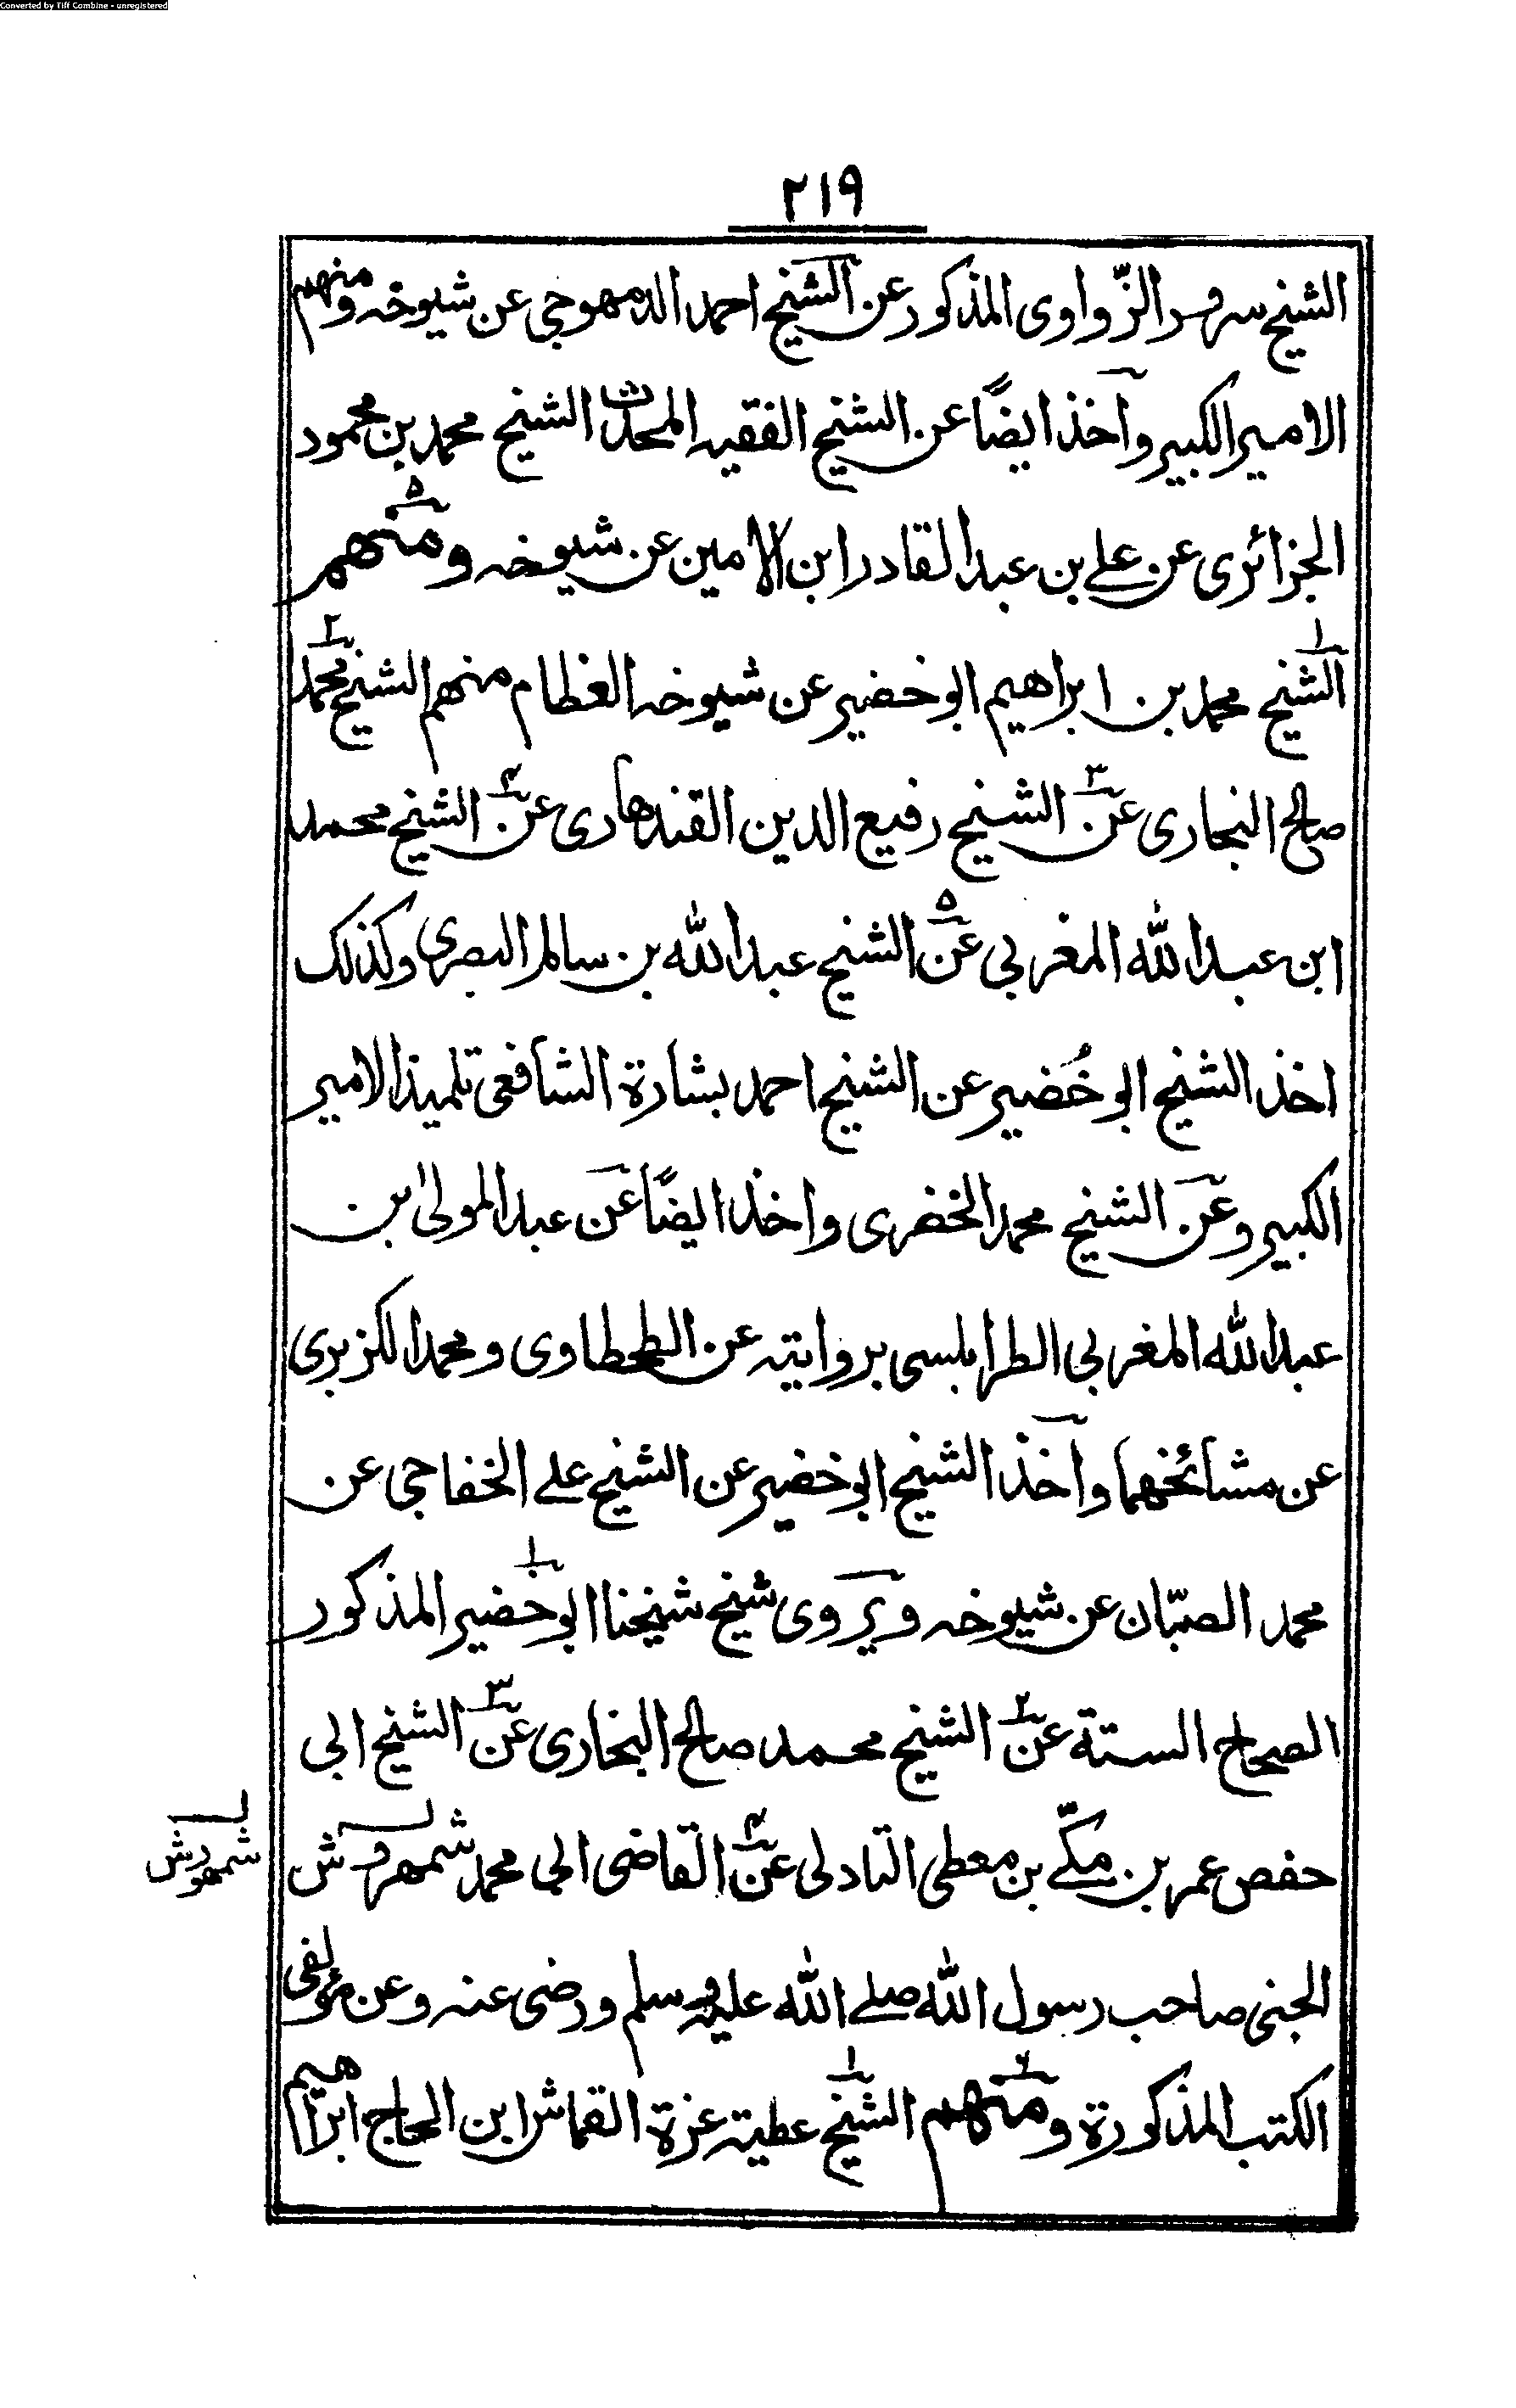 Converted by Tiff Combine - unregistered
٢١٩
الشيخ سرور الزّواوى المذكور عن الشيخ احمد الدمهوجي عن شيوخه ومنهم
الامير الكبير وآخذ ايضًا عن الشيخ الفقيه المحدث الشيخ محمد بن محمود
الجزائرى عن علے بن عبد القادر ابن الامين عن شيوخه ٥ ومنهم
١ الشيخ محمد بن ابراهيم ابو خضير عن شيوخه العظام منهم ٢ الشيخ محمد
صالح البخارى ٣ عن الشيخ رفيع الدين القندهارى ٤ عن الشيخ محمد
ابن عبد الله المغربي ٥ عن الشيخ عبد الله بن سالم البصرى وكذلك
اخذ الشيخ ابو خُضير عن الشيخ احمد بشارة الشافعى تلميذ الامير
الكبير وعن الشيخ محمد الخضرى واخذ ايضًا عن عبد المولىٰ بن
عبد الله المغربي الطرابلسى بروايته عن الطحطاوى ومحمد الكزبرى
عن مشائخهما وآخذ الشيخ ابو خضير عن الشيخ علے الخفاجي عن
محمد الصبّان عن شيوخه ويروى شيخ شيخنا ١ ابو خضير المذكور
الصحاح الستة ٢ عن الشيخ محمد صالح البخارى ٣ عن الشيخ ابى
حفص عمر بن مكّے بن معطى التادلى ٤ عن القاضى ابى محمد شمهروش
شمهورش
الجنى صاحب رسول الله صلے الله عليه وسلم ورضى عنه وعن مؤلفى
الكتب المذكورة ٦ ومنهم ١ الشيخ عطيته عزة القماش ابن الحاج ابراهيم